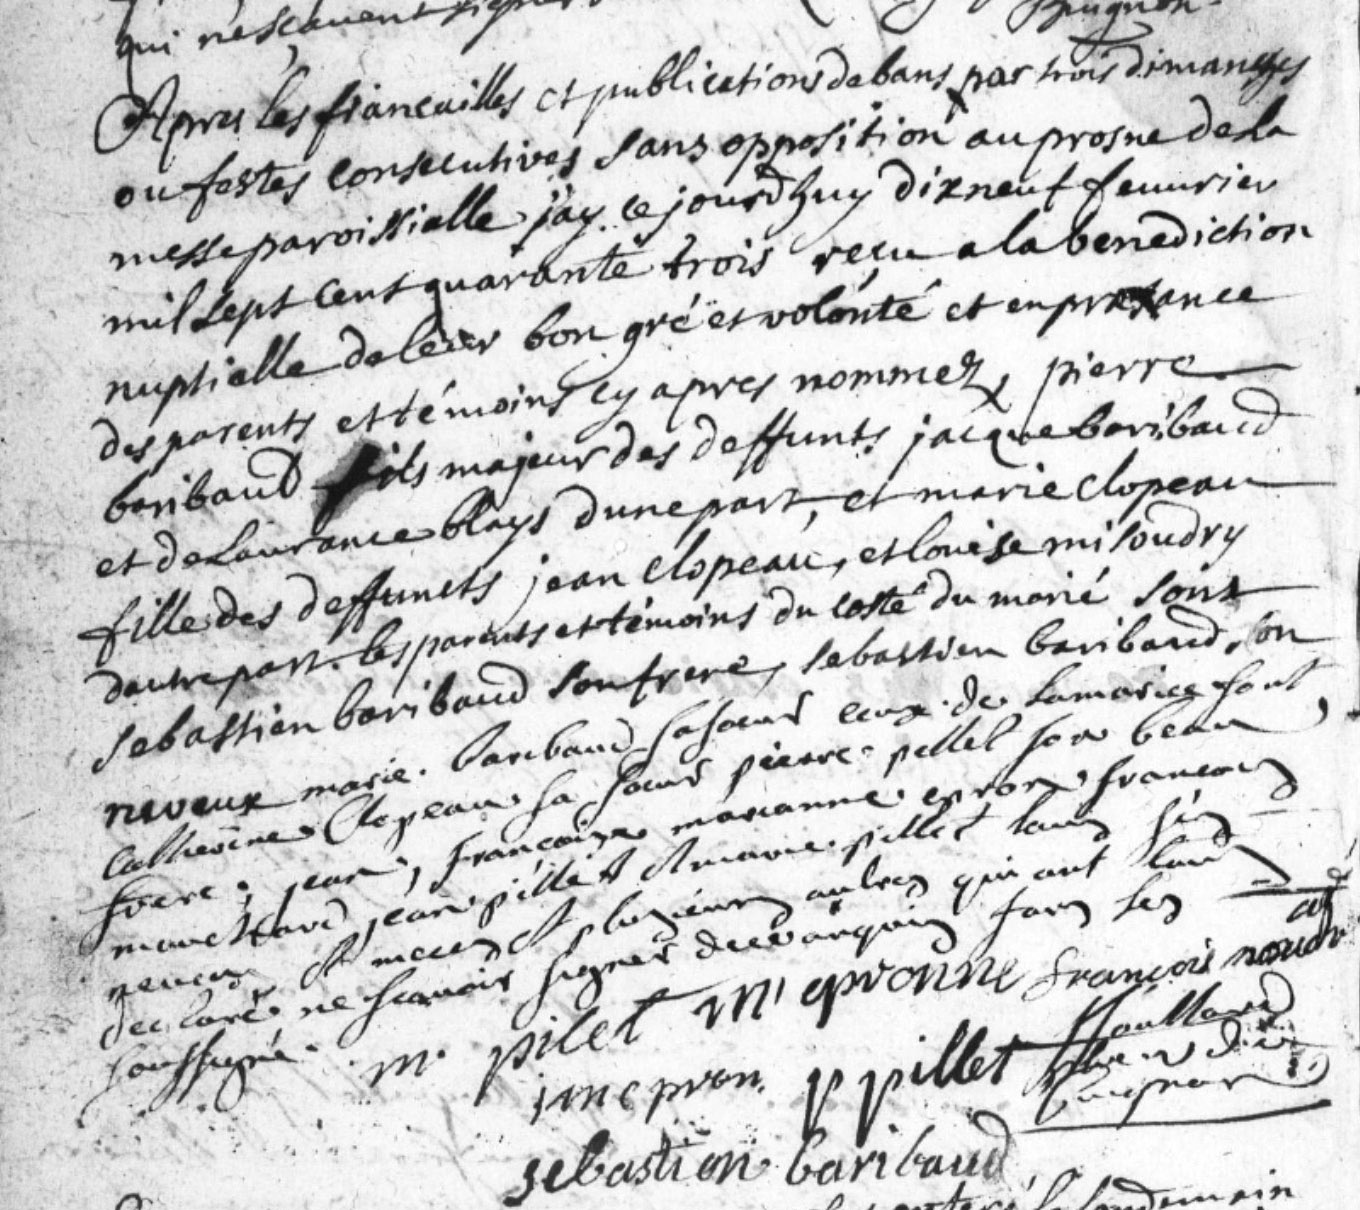 qui nescauent signer
Apres les fiancailles et publications de bans par trois dimanches
ou festes consecutives sans opposition au prosne de la
messe paroissielle j'ay ce jourd'huy dixneuf feuurier
mil sept cent quarante trois reçu a la benediction
nuptielle de leur bon gré et volonté et en presance
des parents et témoins cy apres nommez, pierre
baribaud fils majeur des deffunts jacque baribaud
et de Laurance blays dune part, et marie clopeau
fille des deffuncts jean clopeau, et louise misoudry
dautre part. les parents et témoins du costé du marié sont
sebastien baribaud son frere, sebastien baribaud, son
neveux marie baribaud sa soeur ceux de la mariee sont
Catherine Clopeau sa soeur pierre pillet son beau
frere; jean, francoise marianne epron francois
jean pillet et marie pillet
neveux et nieces et plusieurs autres qui ont
declaré ne scavoir signer de ce enquis fors les
soussigné.
m. pilet m epronne françois
j m epron. p pillet
sebastien baribaud